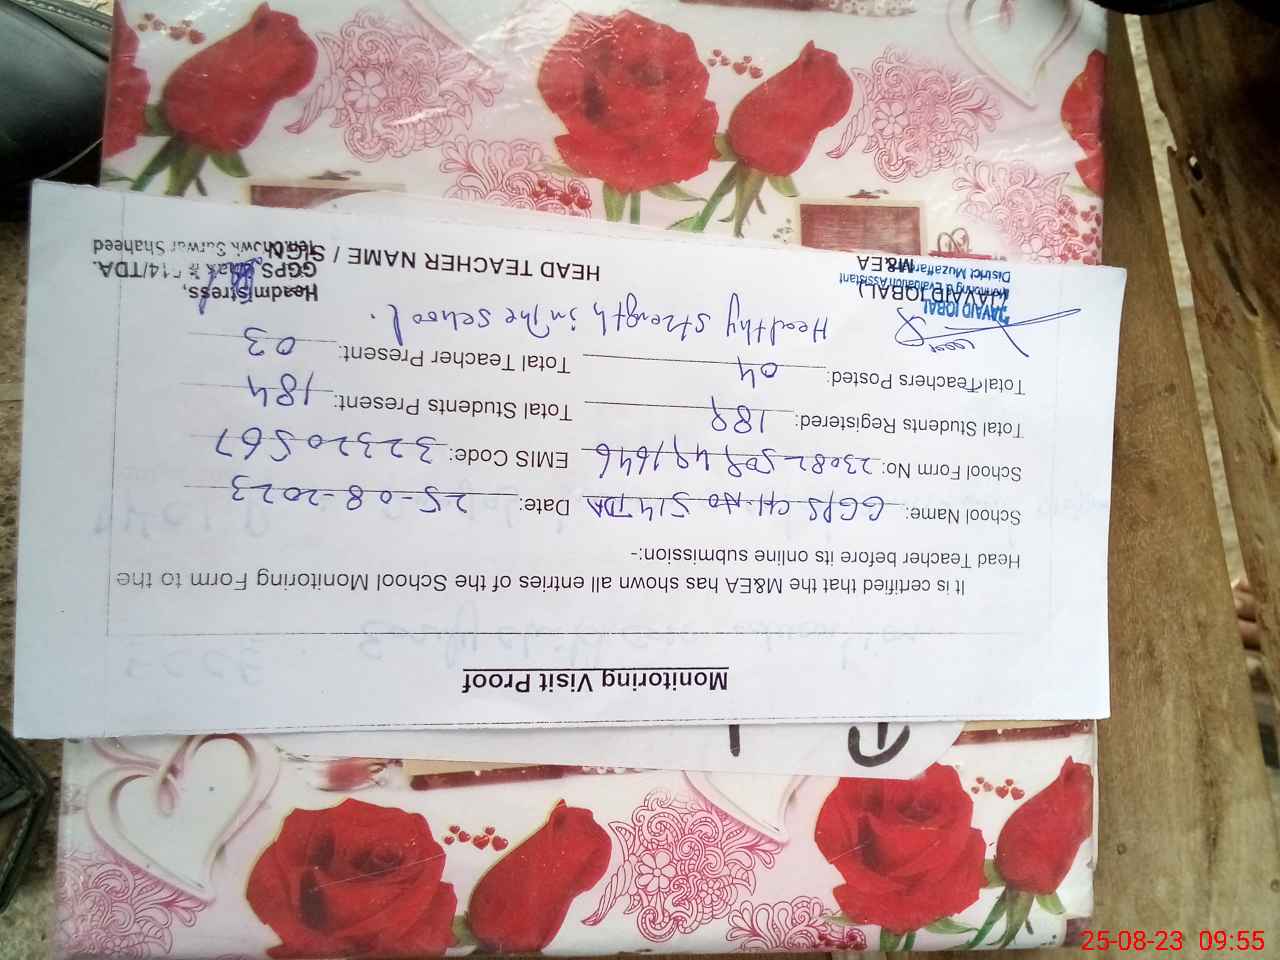 Monitoring Visit Proof
It is certified that the M&EA has shown all entries of the School Monitoring Form to the
Head Teacher before its online submission:-
School Name: GGPS CH. NO 514 TDA Date: 25-08-2023
School Form No: EMIS Code: 32320567
Total Students Registered: 189 Total Students Present: 184
Total Teachers Posted: 04 Total Teacher Present: 03
Healthy strength in the school.
(JAVAID IQBAL)
JAVAID IQBAL
Monitoring & Evaluation Assistant
District Muzaffargarh
M&EA
HEAD TEACHER NAME / SIGN:
Headmistress,
GGPS, Chak # 514/TDA.
Chowk Sarwar Shaheed
25-08-23 09:55